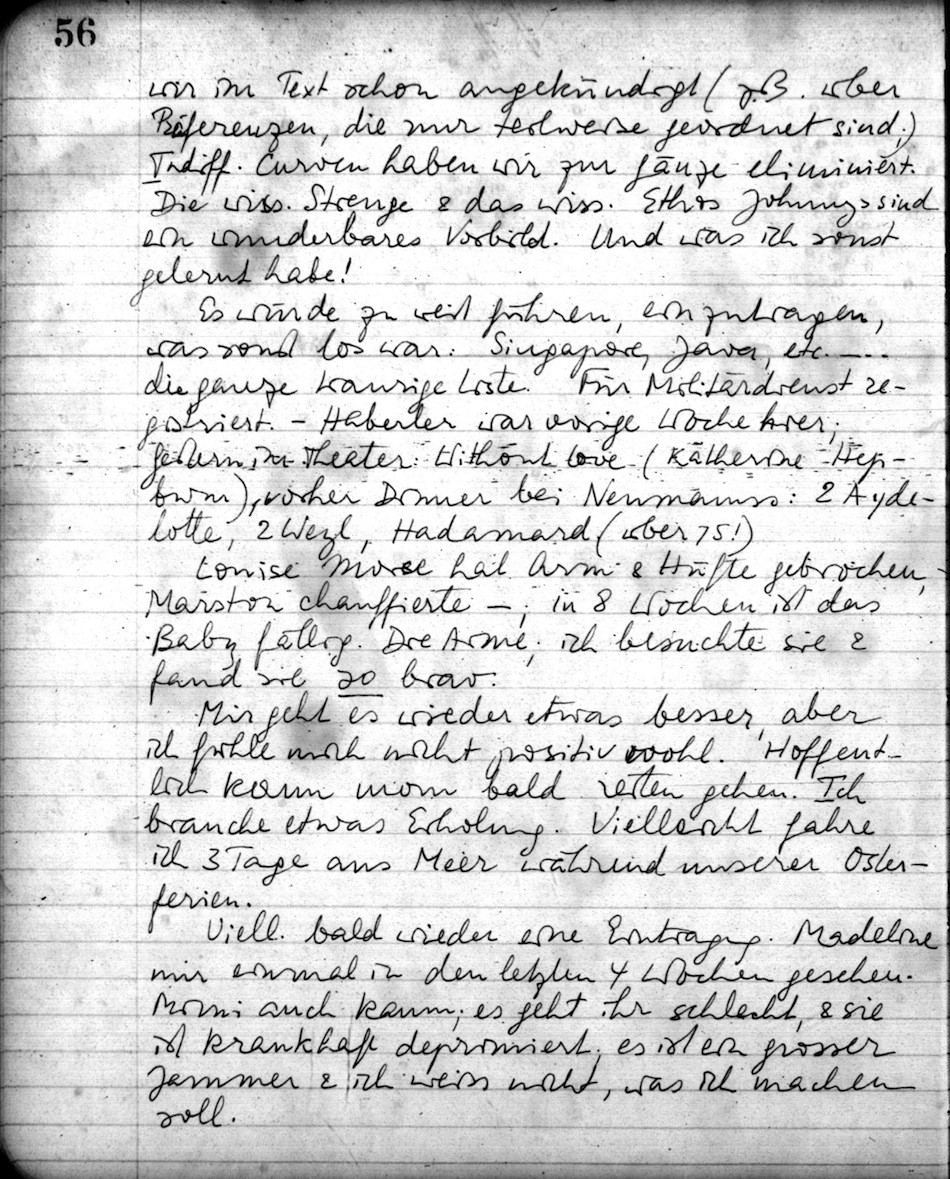 56
wir im Text schon angekündigt (z.B. über
Präferenzen, die nur teilweise geordnet sind.)
Indiff. Curven haben wir zur Gänze eliminiert.
Die wiss. Strenge & das wiss. Ethos Johnnys sind
ein wunderbares Vorbild. Und was ich sonst
gelernt habe!
Es würde zu weit führen, einzutragen,
was sonst los war: Singapore, Java, etc. –...
die ganze traurige Liste. Für Militärdienst re-
gistriert. – Haberler war vorige Woche hier;
gestern im Theater: Without love (Katherine Hep-
burn), vorher Dinner bei Neumanns: 2 Ayde-
lotte, 2 Weyl, Hadamard (über 75!)
Louise Morse hat Arm & Hüfte gebrochen,
Marston chauffierte –; in 8 Wochen ist das
Baby fällig. Die Arme; ich besuchte sie &
fand sie so brav.
Mir geht es wieder etwas besser, aber
ich fühle mich nicht positiv wohl. Hoffent-
lich kann man bald reiten gehen. Ich
brauche etwas Erholung. Vielleicht fahre
ich 3 Tage ans Meer während unserer Oster-
ferien.
Viell. bald wieder eine Eintragung. Madeline
nur einmal in den letzten 4 Wochen gesehen.
Mimi auch kaum; es geht ihr schlecht, & sie
ist krankhaft deprimiert; es ist ein grosser
Jammer & ich weiss nicht, was ich machen
soll.